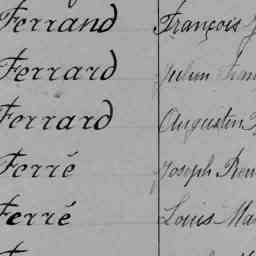 Ferrand François
Ferrard Julien
Ferrard Augustin
Ferré Joseph
Ferré Louis